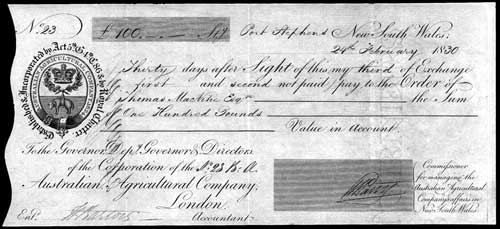 No. 23
£ 100.
Port Stephens New South Wales;
24th February 1830
Thirty days after Sight of this my third of Exchange
first and second not paid pay to the Order of
Thomas Macvitie Esqr. the Sum
of One Hundred Pounds
Value in account.
To the Governor, Depy. Governor & Directors
of the Corporation of the
Australian Agricultural Company,
London.
Ent.
Accountant
Commissioner
for managing the
Australian Agricultural
Company's affairs in
New South Wales
Established & Incorporated by Act 5th G. 4th C. 86 & by Royal Charter.
AUSTRALIAN AGRICULTURAL COMPANY